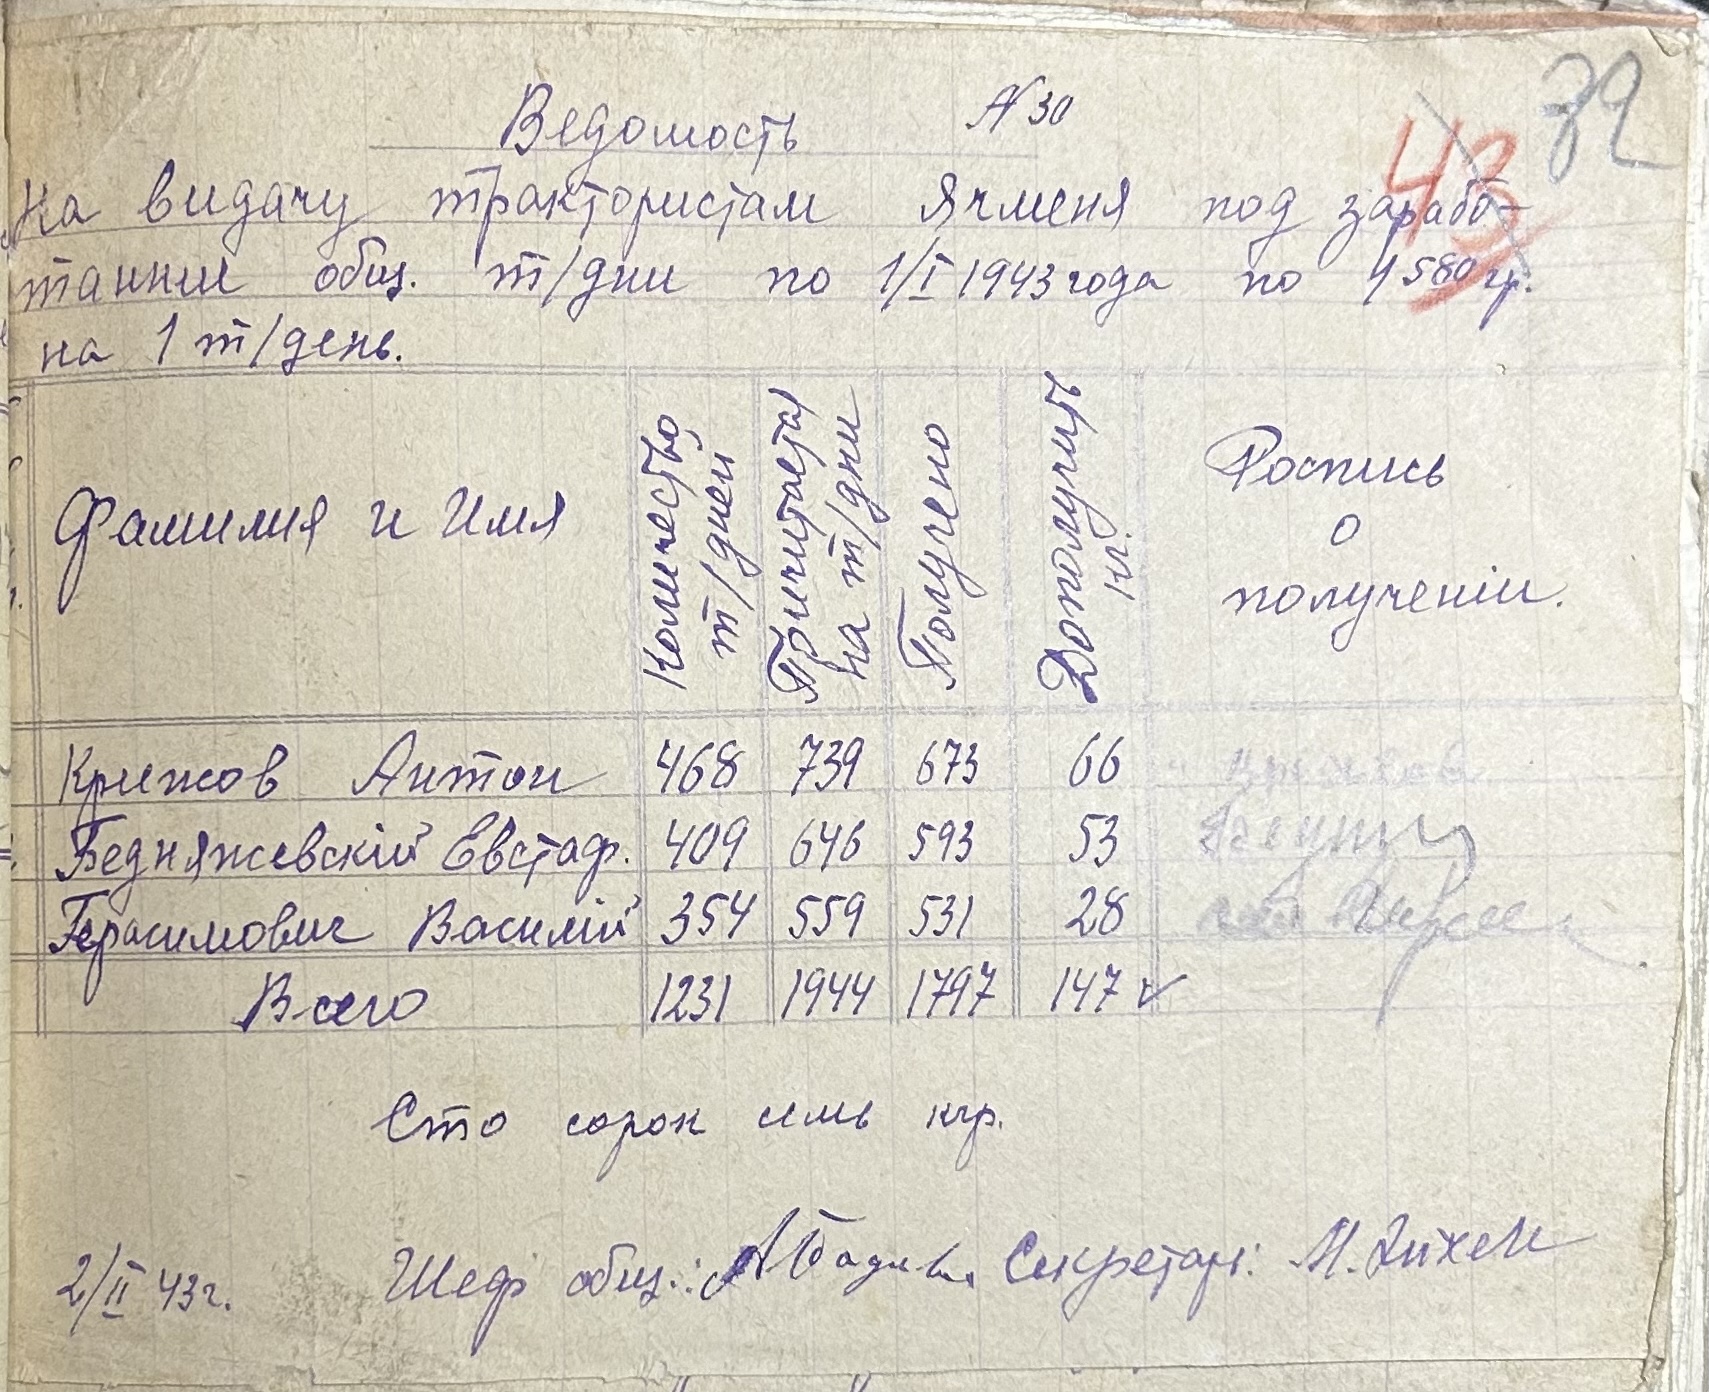 Ведомость N 30
43
72
На видачу трактористам Ячменя под зарабо-
танние общ. т/дни по 1/I 1943 года по 1580 гр.
на 1 т/день.
Фамилия и Имя Количество т/дней Причитаетса на т/дни Получено Дополучить кг. Роспись о полученіи.
Крижов Антон 468 739 673 66
Бедняжевскій Евстаф. 409 646 593 53
Герасимович Василій 354 559 531 28
Всего 1231 1944 1797 147 ✓
Сто сорок семь кгр.
2/II 43 г. Шеф общ.: Секретарь: М.